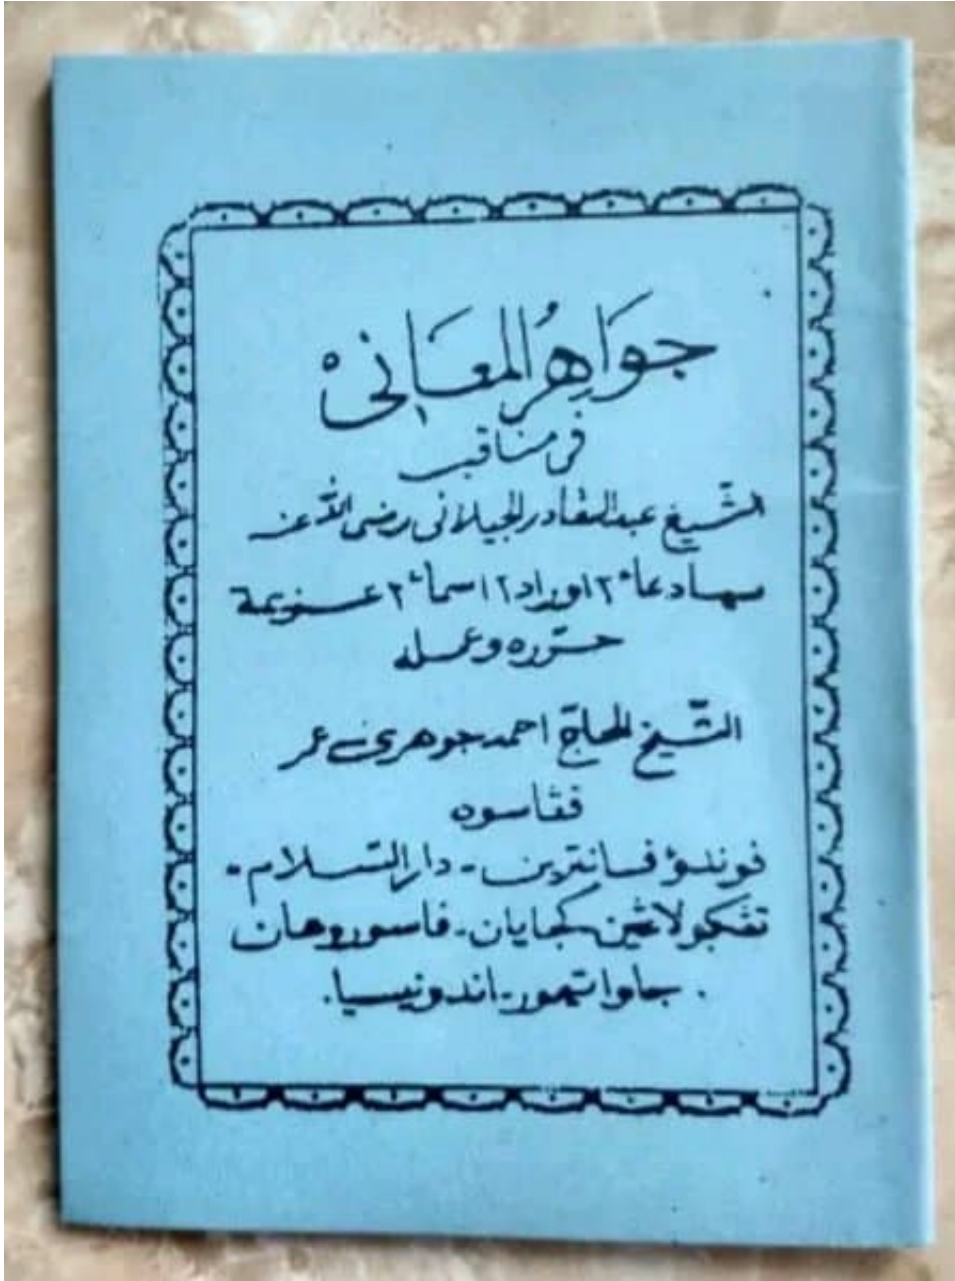 جَوَاهِرُ المَعَانِى
فى مناقب
الشّيخ عبد القادر الجيلانى رضى اللّه عنه
دعاء٢ اوراد٢ اسماء٢ عزيمة
حرّره وعمله
الشّيخ الحاجّ احمد جوهرى عمر
ڤڠاسوه
ڤوندوء ڤسانترين - دار السّلام -
كجايان - ڤاسوروهان
. جاوا تيمور - اندونيسيا .